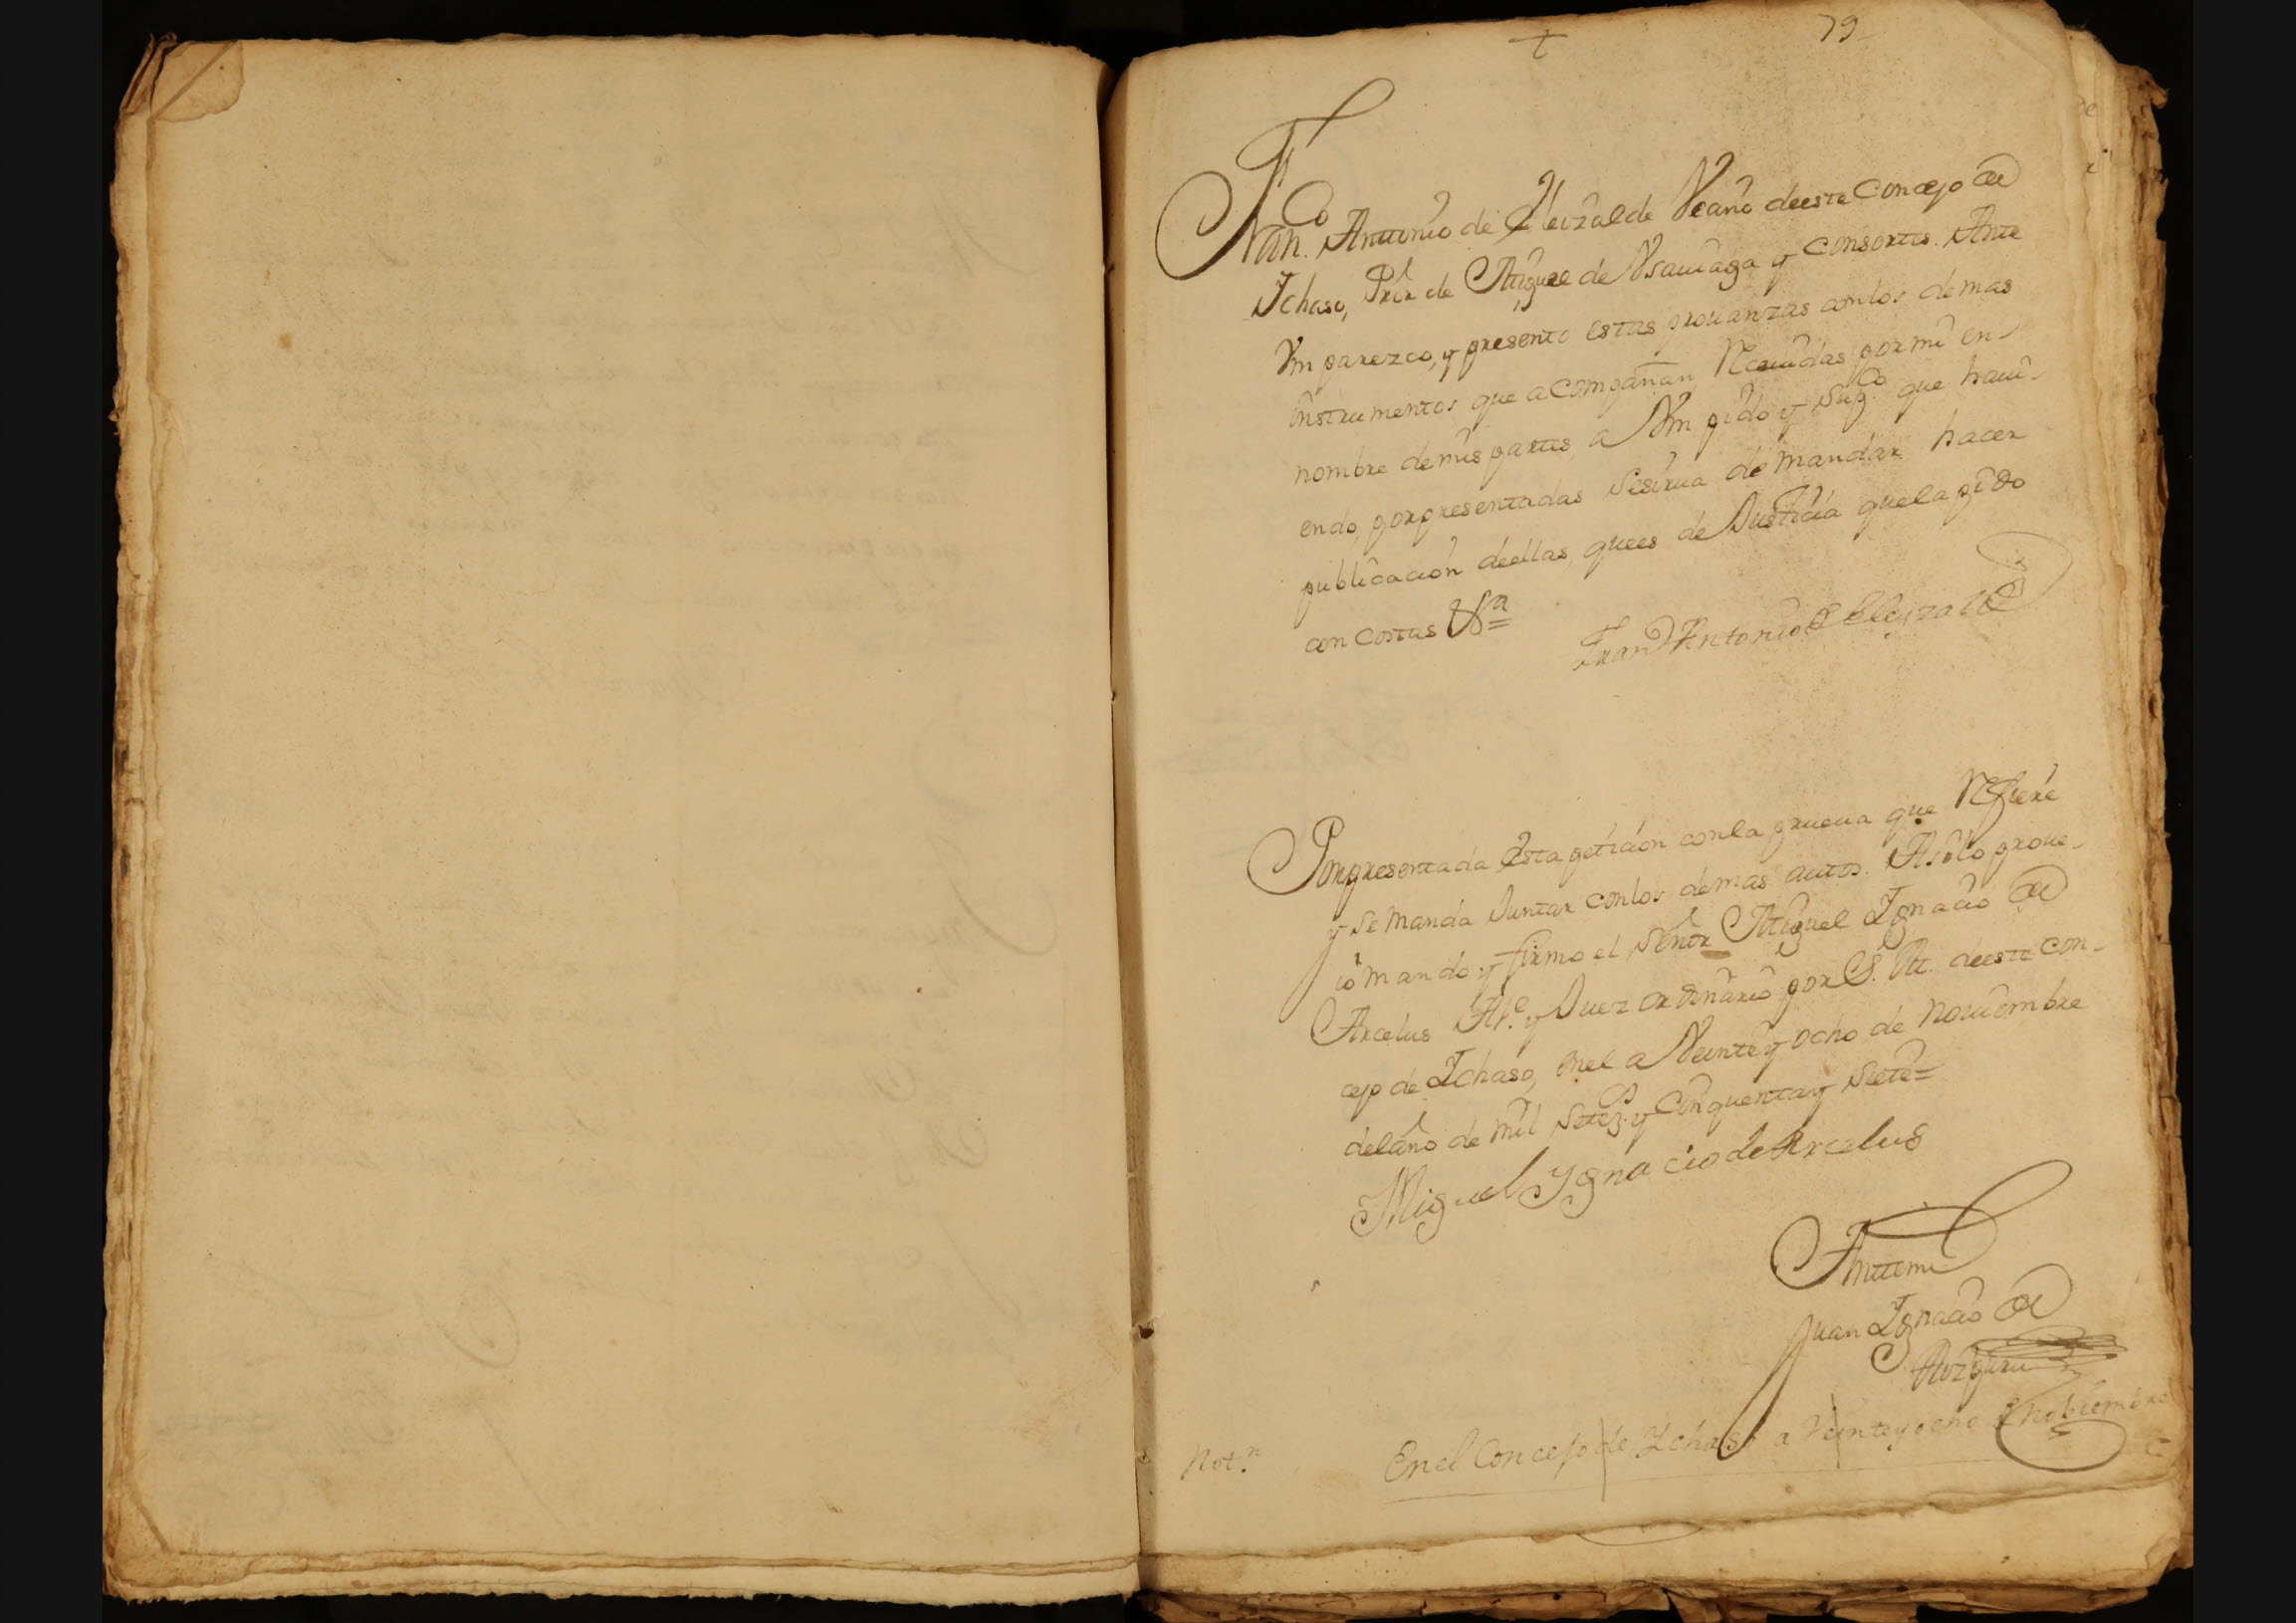 79
Fran.co Antonio de Eleizalde Vecino deeste Concejo de
Ichaso, Prór de Miguel de Vsauiaga y consortes. Ante
Vm parezco, y presento estas prouanzas conlos demas
instrumentos que acompañan Reciuidas por mi en-
nombre demis partes, a Vm pido y sup.co que haui-
endo, porpresentadas sesirua de mandar hacer
publicacion deellas, quees de Justicia quela pido
con costas &a=
Fran.co Antonio de Eleyzalde
Porpresentada Esta peticion conla prueua que Refiere
y se manda Juntar conlos demas autos. Asilo proue-
io mando y firmo el señor Miguel Ignacio de
Arcelus Al.e y Juez ordinario por S. M. deeste con-
cejo de Ichaso, enel a Veinte y ocho de nouiembre
delaño de mil setez.s y cinquentay siete=
Miguel Ygnacio de Arcelus
Antemi
Juan Ignacio de
Not.n
Enel Concejo de Ichaso a Veinteyocho de Nobiembre